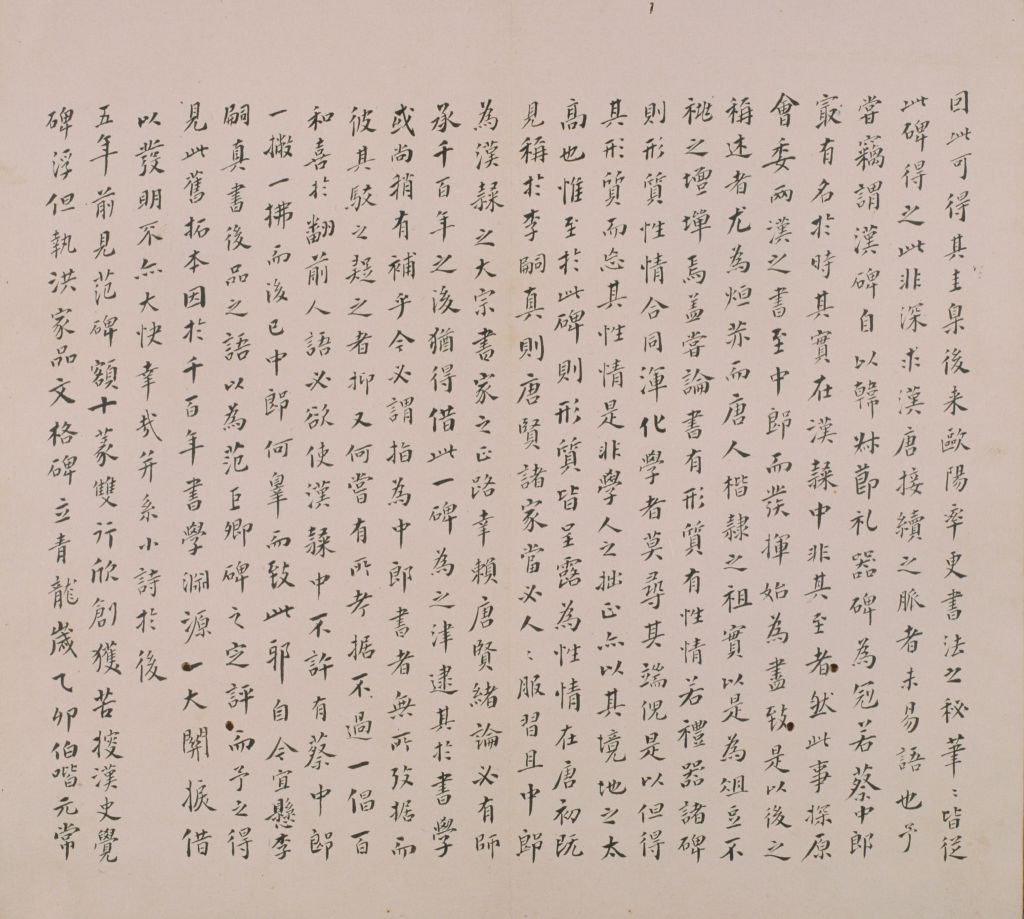 因此可得其圭臬後来歐陽率更書法之秘筆〻皆從
此碑得之此非深求漢唐接續之脈者未易語也予
嘗竊謂漢碑自以韓勑莭礼器碑為冠若蔡中郎
寂有名於時其實在漢隸中非其至者然此事探原
會委兩漢之書至中郎而發揮始為盡致是以後之
稱述者尤為烜赤而唐人楷隸之祖實以是為俎豆不
祧之壇墠焉盖嘗論書有形質有性情若禮器諸碑
則形質性情合同渾化學者莫尋其端倪是以但得
其形質而忘其性情是非學人之拙正亦以其境地之太
髙也惟至於此碑則形質皆呈露為性情在唐初既
見稱於李嗣真則唐賢諸家當必人〻服習且中郎
為漢隸之大宗書家之正路幸賴唐賢緒論必有師
承千百年之後猶得借此一碑為之津逮其於書學
或尚稍有補乎今必謂指為中郎書者無所攷据而
彼其駁之疑之者抑又何嘗有所考据不過一倡百
和喜於翻前人語必欲使漢隸中不許有蔡中郎
一撇一拂而後已中郎何辜而致此耶自今宜懸李
嗣真書後品之語以為范巨卿碑之定評而予之得
見此舊拓本因於千百年書學淵源一大關捩借
以發明不亦大快幸哉并系小詩於後
五年前見范碑額十篆雙行欣創獲苦搜漢史覺
碑浮但執洪家品文格碑立青龍嵗乙卯伯喈元常